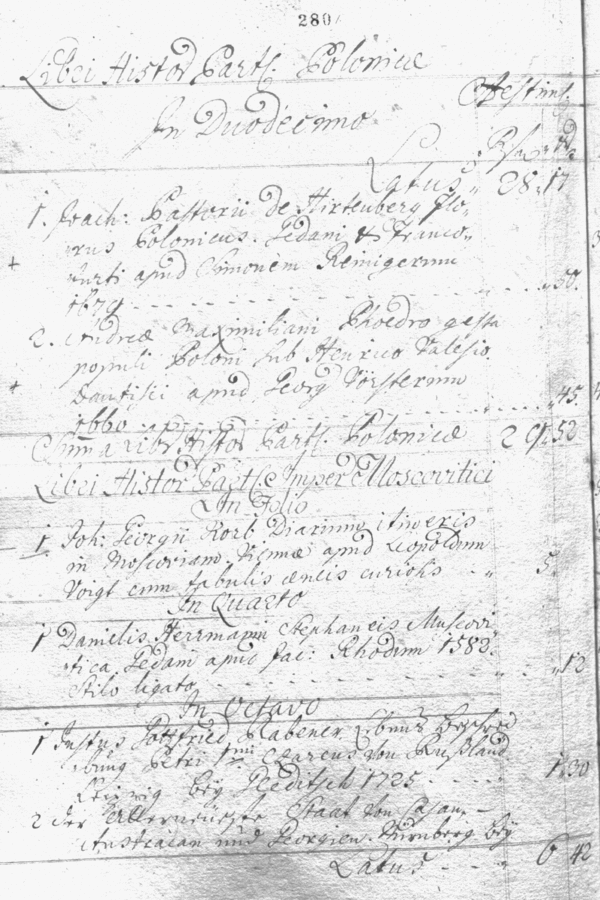 280
Libri Histor Part. Poloniæ
In Duodecimo
Æstim.
Latus " 28. 17
1. Joach: Pastorii de Hirtenberg flo-
rus Polonicus. Gedani & Franco-
furti apud Simonem Remigerum
1679 - - - - - - - - - - - " 50.
2. Andreæ Maxmiliani Phoedro gesta
populi Poloni sub Henrico Valesio
Dantisci apud Georg Försterum
1660 - - - - - - - " 45.
Suma Libr Histor Part. Poloniæ 29. 52
Libri Histor Part. Imper Moscovitici
In Folio
1 Joh: Georgii Korb Diarium itineris
in Moscoviam Viennæ apud Leopoldum
Voigt cum fabulis æneis curiosis - - " 5.
In Quarto
1 Danielis Herrmanni Stephaneis Muscovi
tica Gedani apud Jac: Rhodum 1582.
Stilo ligato - - - - - - - " 12
In Octavo
1 Justus Gottfried Rabener Leben
Petri 1mi Czaren von Rußland
Leipzig bey Gleditsch 1725 - - - 1. 30
2 der Allerneueste Staat von Casan, -
Astracan und Georgien. Nürnberg bey
Latus - - - 6 42